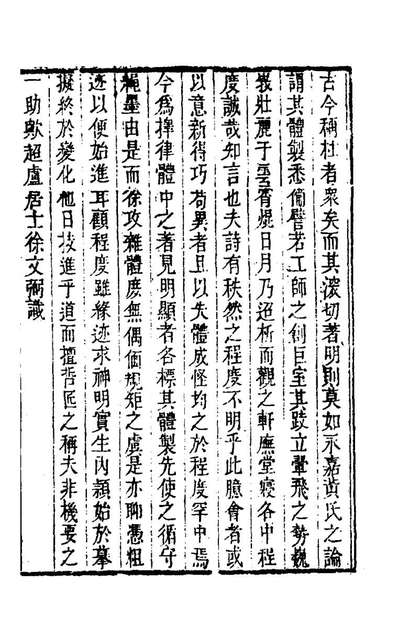 古今稱杜者衆矣而其深切著明則莫如永嘉黃氏之論
謂其體製悉備譬若工師之創巨室其跂立翬飛之勢巍
峩壯麗于雲霄焜日月乃逕析而觀之軒廡堂寢各中程
度誠哉知言也夫詩有秩然之程度不明乎此臆會者或
以意新得巧苟異者且以失體成怪均之於程度罕中焉
今爲擇律體中之著見明顯者各標其體製先使之循守
繩墨由是而徐攻雜體庶無偭規矩之虞是亦聊憑粗
迹以便始進耳顧程度雖緣迹求神明實生內頴始於摹
擬終於變化他日技進乎道而擅哲匠之稱夫非機要之
一助歟超廬居士徐文弼識